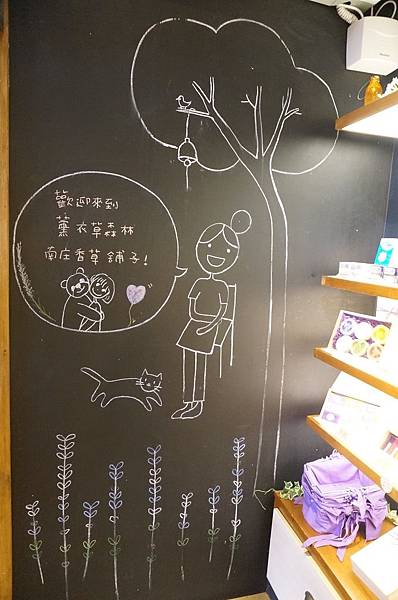 歡迎來到
薰衣草森林
南庄香草舖子!